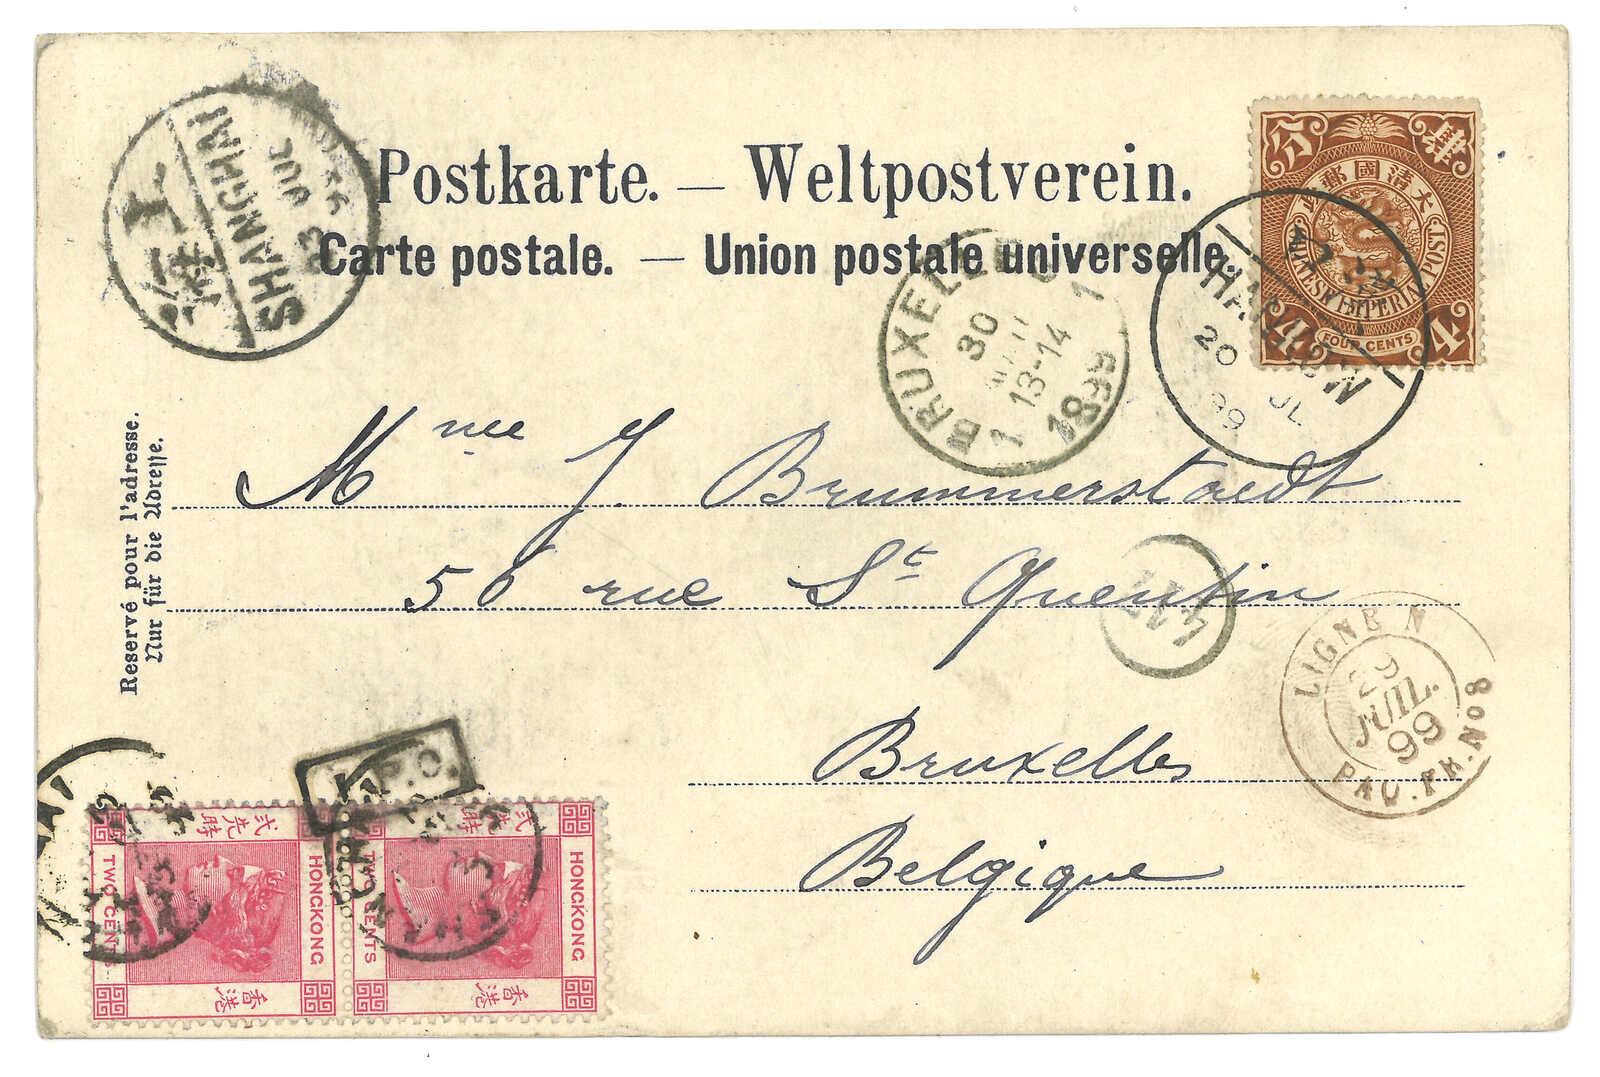 Postkarte. — Weltpostverein.
Carte postale. — Union postale universelle.
Reservé pour l'adresse.
Nur für die Adresse.
Mme J. Brummerstaedt
56 rue St Quentin
Bruxelles
Belgique
SHANGHAI
JUL
99
大清國郵政
IMPERIAL POST
FOUR CENTS
4 4
HANKOW
20 JL
99
BRUXELLES
30
13-14
1899
1 1
LIGNE N
JUIL.
99
PAQ. FR. No 8
I.P.O.
HONGKONG
TWO CENTS
香港
HONGKONG
TWO CENTS
香港